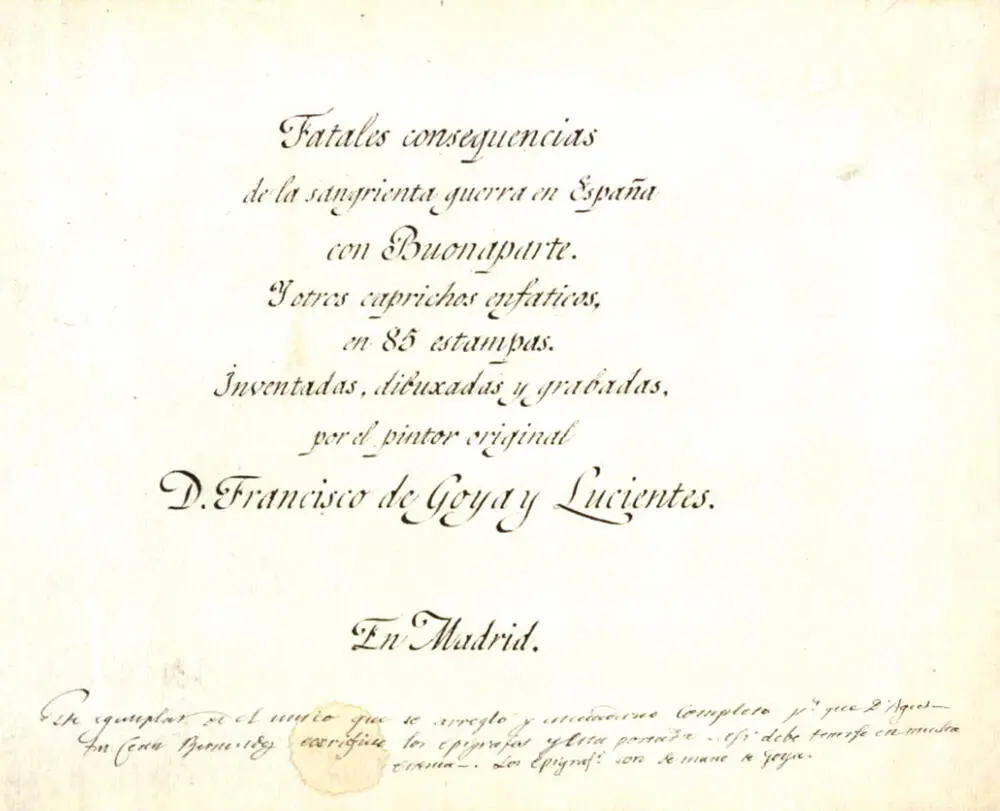 Fatales consequencias
de la sangrienta guerra en España
con Buonaparte.
Y otros caprichos enfaticos,
en 85 estampas.
Inventadas, dibuxadas y grabadas,
por el pintor original
D. Francisco de Goya y Lucientes.
En Madrid.
exemplar es el unico que se arregló y completo pª que D Agus-
tin Cean Bermudez los epigrafes y esta portada. asi debe tenerse en mucha
estima-. Los Epigrafs. son de mano de Goya.